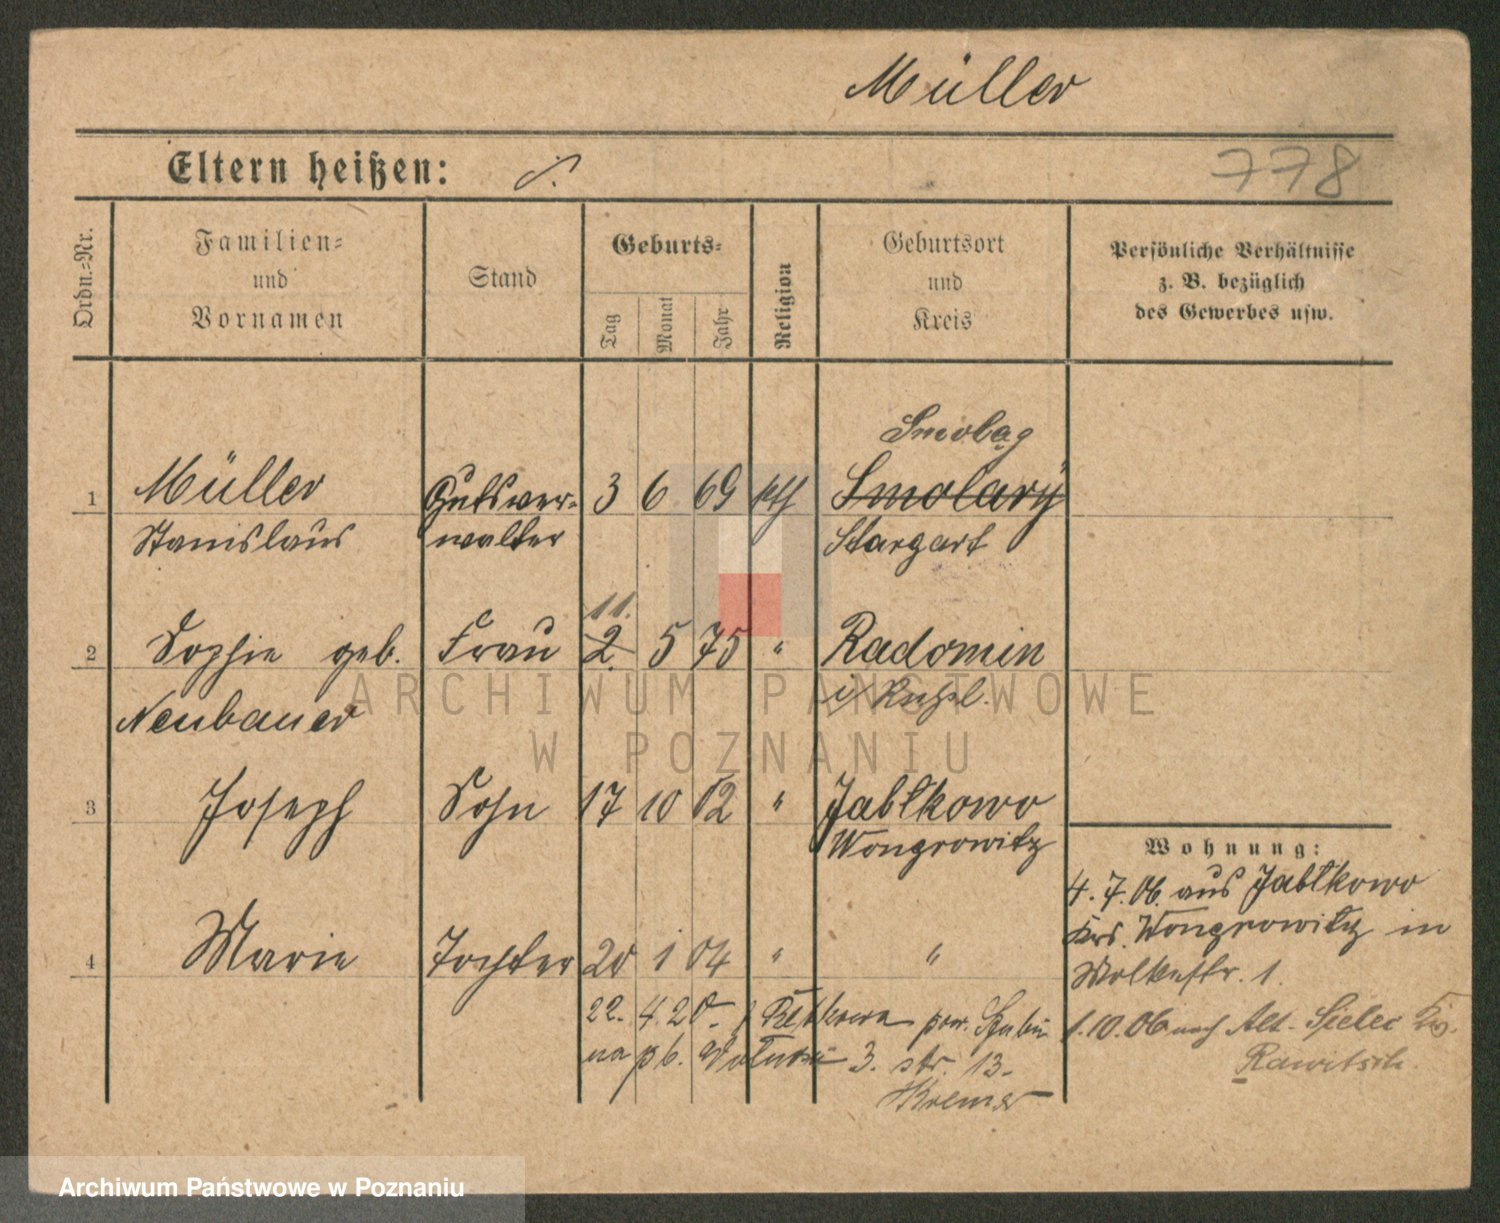 Müller
Eltern heißen:
778
Ordn.=Nr.
Familien=
und
Vornamen
Stand
Geburts=
Tag
Monat
Jahr
Religion
Geburtsort
und
Kreis
Persönliche Verhältnisse
z. B. bezüglich
des Gewerbes usw.
Smolag
1 Müller Gutsver= 3 6 69 kth Smolary
Stanislaus walter Stargart
11.
2 Sophie geb. Frau 2. 5 75 " Radomin
Neubauer i/
3 Joseph Sohn 17 10 02 " Jabłkowo
Wongrowitz
Wohnung:
4. 7. 06. aus Jabłkowo
Krs. Wongrowitz in
4 Marie Tochter 20 1 04 " "
Molkestr. 1.
22. 4. 20 pow.
1. 10. 06 nach Alt-Sielec
na 3. str. 13.
Rawitsch.
ARCHIWUM PAŃSTWOWE
W POZNANIU
Archiwum Państwowe w Poznaniu